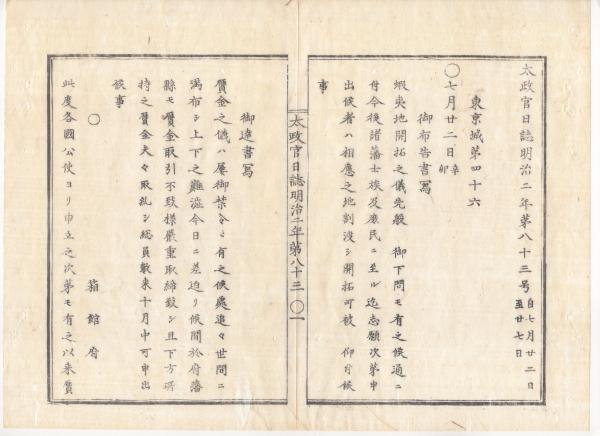 太政官日誌明治二年第八十三号 自七月廿二日
至廿七日
東京城第四十六
〇七月廿二日辛卯
御布告書寫
蝦夷地開拓之儀先般 御下問モ有之候通ニ
付今後諸藩士族及庶民ニ至ル迄志願次第申
出候者ハ相應之地割渡シ開拓可被 仰付候
事
太政官日誌明治二年第八十三 〇一
御達書寫
贋金之儀ハ屢御禁令モ有之候處追々世間ニ
満布シ上下之難澁今日ニ差迫リ候間於府藩
縣モ贋金取引不致様嚴重取締致シ且下方所
持之贋金夫々取糺シ総員數来十月中可申出
候事
〇 箱館府
此度各國公使ヨリ申立之次第モ有之以来贋